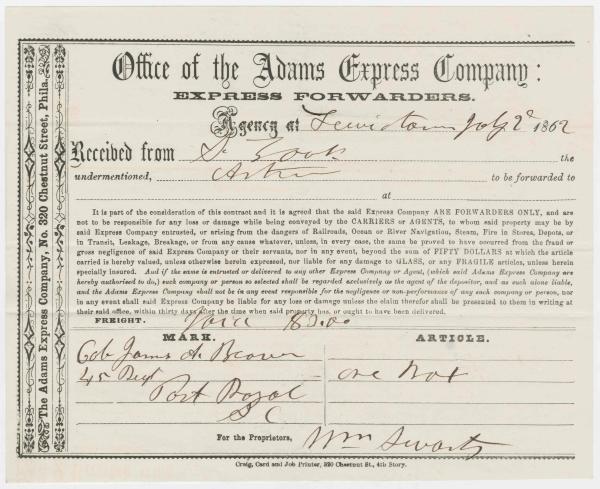 Office of the Adams Express Company:
EXPRESS FORWARDERS.
Agency at Lewistown July 2d 1862
Received from S. Zook the
undermentioned, to be forwarded to
at
It is part of the consideration of this contract and it is agreed that the said Express Company ARE FORWARDERS ONLY, and are
not to be responsible for any loss or damage while being conveyed by the CARRIERS or AGENTS, to whom said property may be by
said Express Company entrusted, or arising from the dangers of Railroads, Ocean or River Navigation, Steam, Fire in Stores, Depots, or
in Transit, Leakage, Breakage, or from any cause whatever, unless, in every case, the same be proved to have occurred from the fraud or
gross negligence of said Express Company or their servants, nor in any event, beyond the sum of FIFTY DOLLARS at which the article
carried is hereby valued, unless otherwise herein expressed, nor liable for any damage to GLASS, or any FRAGILE articles, unless herein
specially insured. And if the same is entrusted or delivered to any other Express Company or Agent, (which said Adams Express Company are
hereby authorised to do,) such company or person so selected shall be regarded exclusively as the agent of the depositor, and as such alone liable,
and the Adams Express Company shall not be in any event responsible for the negligence or non-performance of any such company or person, nor
in any event shall said Express Company be liable for any loss or damage unless the claim therefor shall be presented to them in writing at
their said office, within thirty days after the time when said property has, or ought to have been delivered.
FREIGHT. Paid
MARK. ARTICLE.
Col James A Beaver
45 Regt one Box
Port Royal
S C
For the Proprietors, Wm Swartz
Craig, Card and Job Printer, 320 Chestnut St., 4th Story.
The Adams Express Company, No. 320 Chestnut Street, Phila.